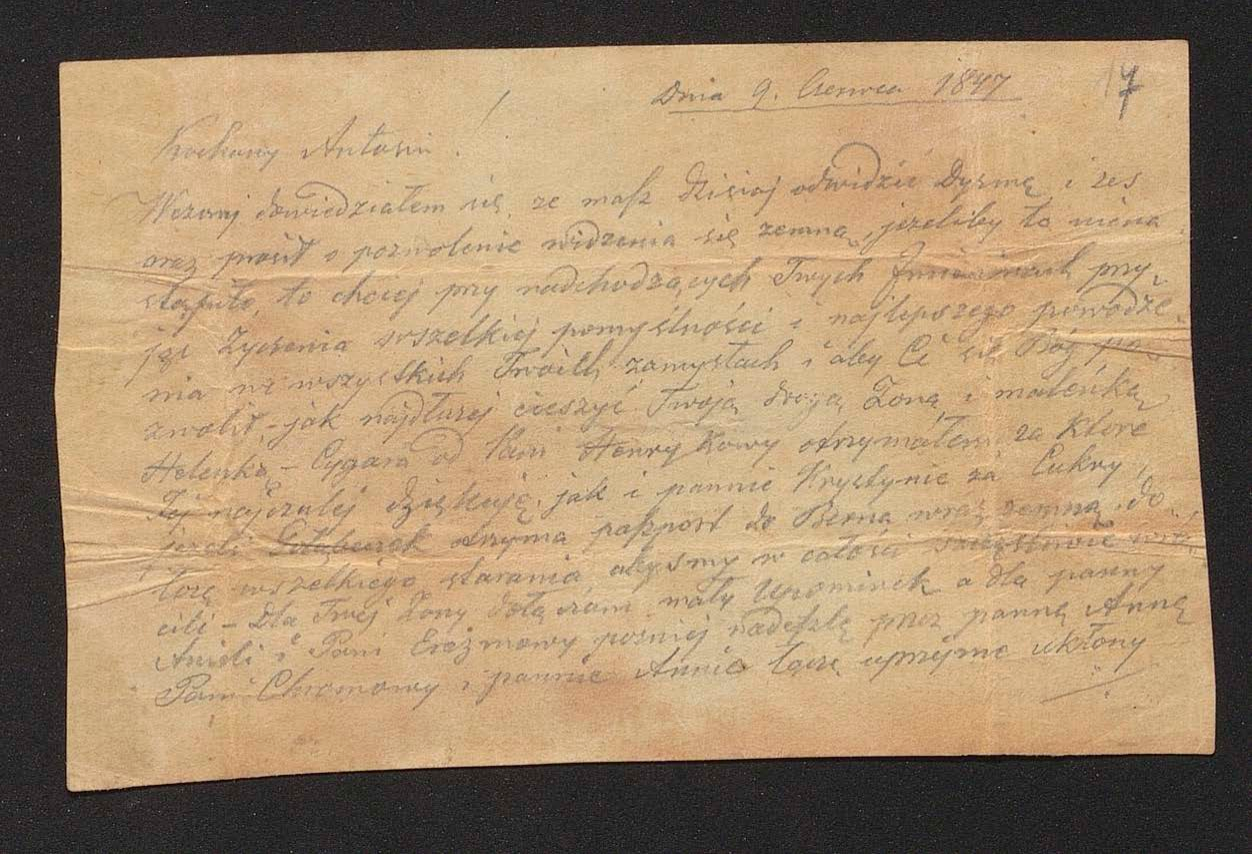 Dnia 9. Czerwca 1847 17
Kochany Antosiu!
Wczoraj dowiedziałem się, ze masz dzisiaj odwidzić Dyzmę i zes
oraz prosił o pozwolenie widzenia się zemną, jezeliby to niena
stąpiło, to chciej przy nadchodzących Twych Imieninach przy-
jąć Zyczenia wszelkiej pomyślności i najlepszego powodze-
nia we wszystkich Twoich zamysłach i aby Ci się Bóg po-
zwolił, jak najdłuzej cieszyć Twoją drogą Zoną i maleńką
Helenką, – Cygara od Pani Henrykowy otrzymałem za które
Jej najczulej dziękuję, jak i pannie Krystynie za Cukry,
jezeli Gołąbeczek otrzyma paszport do Berna wraz zemną, do-
łozę wszelkiego starania abysmy w całości szczęśliwie wró-
cili – Dla Twej Zony dołączam mały Upominek a dla panny
Anieli i Pani Erazmowy pozniej nadeszlę przez pannę Annę
Pani Chromowy i pannie Annie łączę uprzejme ukłony